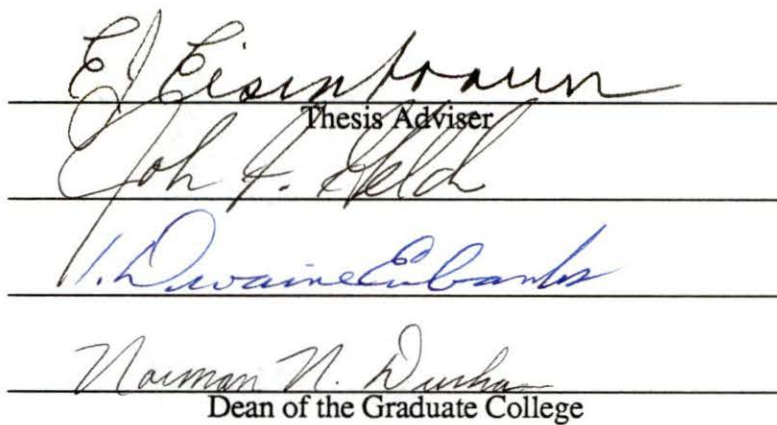 EJ Eisenbraun
Thesis Adviser
John F. Gelch
I. Dwaine Eubanks
Norman N. Durham
Dean of the Graduate College